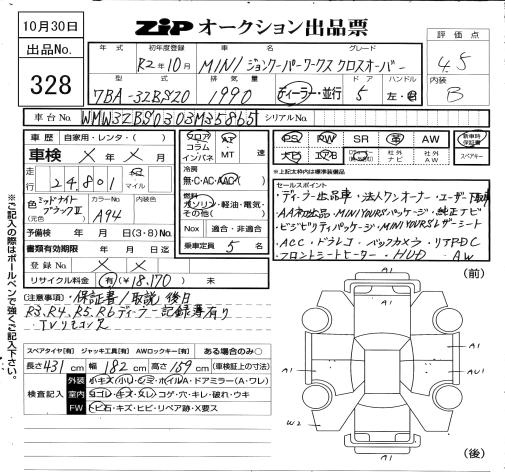 10月30日
ZIP オークション出品票
出品No.
328
評価点
4.5
内装
B
年式 初年度登録 車名 グレード
R2年10月 MINI ジョンクーパーワークス クロスオーバー
型式 排気量 ドア ハンドル
7BA-3ZBS20 1990 ディーラー・並行 5 左・右
車台No. WMW3ZBS0303M35865 シリアルNo.
車歴 自家用・レンタ( )
車検 × 年 × 月
走行 24,801 km マイル
色 ミッドナイトブラックII (元色)
カラーNo. A94
内装色
予備検 年 月 日 (3・8)No.
書類有効期限 年 月 日迄
登録No. × ×
リサイクル料金 有 ¥18,170 未
フロア コラム インパネ
AT MT 速
冷房
無・C・AC・AAC
燃料
ガソリン・軽油・電気・その他( )
Nox 適合・非適合
乗車定員 5 名
PS PW SR 革 AW
ナビ エアB 社外ナビ 社外AW
新車時保証書
スペアキー
*上記太枠内は標準装備
セールスポイント
・ディーラー出品車・法人ワンオーナー・ユーザー下取車
AA初出品・MINI YOURSパッケージ・純正ナビ
・ビジビリティパッケージ・MINI YOURSレザーシート
・ACC・ドラレコ・バックカメラ・リアPDC
・フロントシートヒーター・HUD AW
(注意事項)・保証書/取説 後日
R3.R4.R5.R6 ディーラー記録簿有り
スペアタイヤ[有] ジャッキ工具[有] AWロックキー[有] ある場合のみ○
長さ 431 cm 幅 182 cm 高さ 159 cm (車検証上の寸法)
検査記入
外装 小キズ・小U・ウミ・ホイルA・ドアミラー(A・ワレ)
室内 ヨゴレ・キズ・スレ・コゲ・穴・キレ・破れ・ウキ
FW トビ石・キズ・ヒビ・リペア跡・X要ス
※ご記入の際はボールペンで強くご記入下さい。
(前)
A1
A1
A1
AU1
W2
A1
(後)